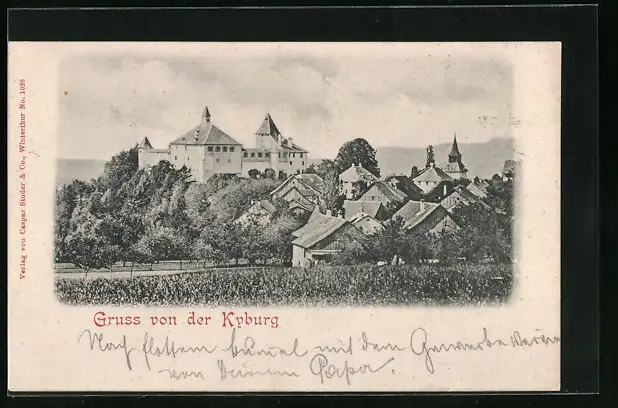 Verlag von Caspar Studer & Co., Winterthur No. 1028
Gruss von der Kyburg
Nach flottem Bummel mit dem Gewerbe Verein
von Deinem Papa.